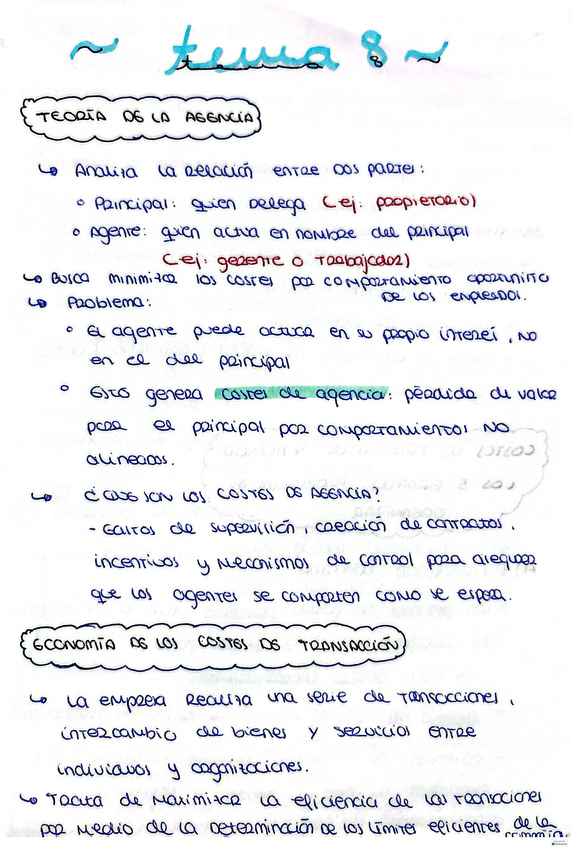 ~ tema 8 ~
TEORÍA DE LA AGENCIA
↳ Analiza la relación entre dos partes:
◦ Principal: quien delega (ej: propietario)
◦ Agente: quien actua en nombre del principal
(ej: gerente o trabajador)
↳ Busca minimizar los costes por comportamiento oportunista
de los empleados.
↳ Problema:
◦ El agente puede actuar en su propio interés, no
en el del principal
◦ Esto genera costes de agencia: pérdida de valor
para el principal por comportamientos no
alineados.
↳ ¿Qué son los costes de agencia?
- Gastos de supervisión, creación de contratos,
incentivos y mecanismos de control para asegurar
que los agentes se comporten como se espera.
ECONOMÍA DE LOS COSTES DE TRANSACCIÓN
↳ La empresa realiza una serie de transacciones,
intercambio de bienes y servicios entre
individuos y organizaciones.
↳ Trata de maximizar la eficiencia de las transacciones
por medio de la determinación de los límites eficientes de la